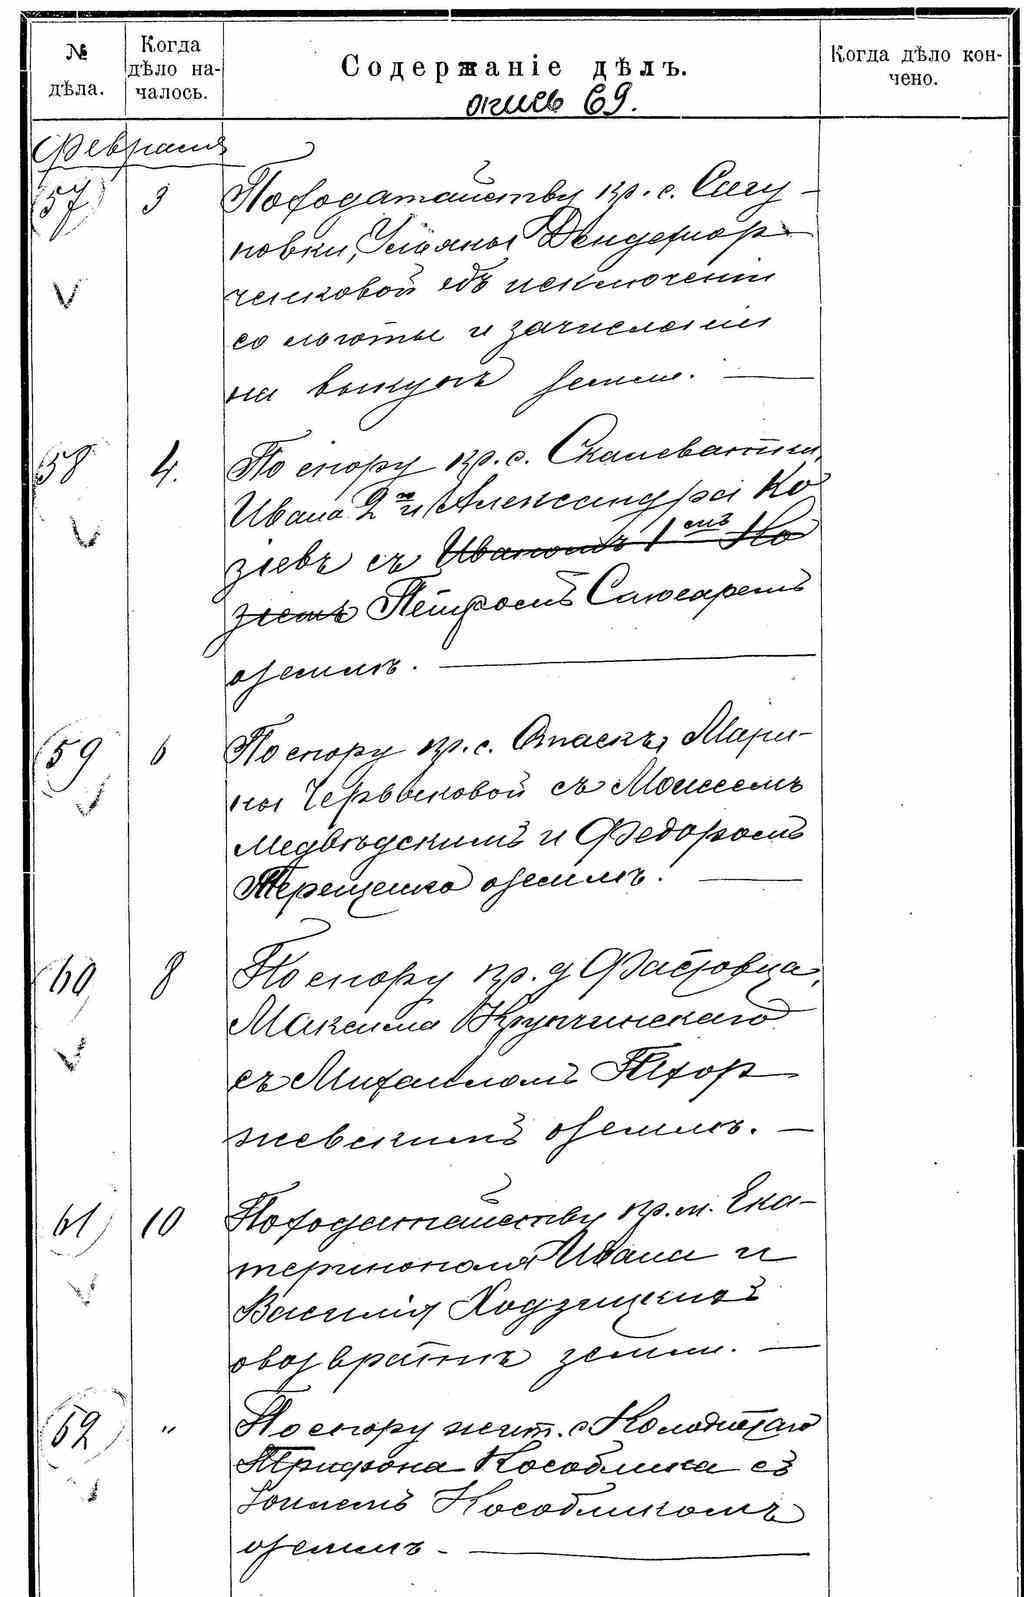 № дѣла.
Когда дѣло началось.
Содержаніе дѣлъ.
Когда дѣло кончено.
опись 69.
Февраля
57 3 По ходатайству кр. с. Сагу-
новки, Ульяны
чениковой объ исключеніи
со льготы и зачисленіи
на выкупъ земли. —
58 4. По спору кр. с. Скалеватки,
Ивана 2го и Александра Ко
зіевъ съ Иваномъ 1мъ Ко
зіемъ Петромъ Слюсаремъ
о землѣ. —
59 6 По спору кр. с. Мари-
ны Червоковой съ Моисеемъ
Медвѣдскимъ и Федоромъ
Терещенко о землѣ. —
60 8 По спору кр. д
Максима Крупчинскаго
съ Михаиломъ
жевскимъ о землѣ. —
61 10 По ходатайству кр. м. Ека-
теринополя Ивана и
Василія Ходзицкихъ
о возвратѣ земли. —
62 " По спору жит. с Колодистаго
Трифона Кособлика съ
Кособликомъ
о землѣ. —